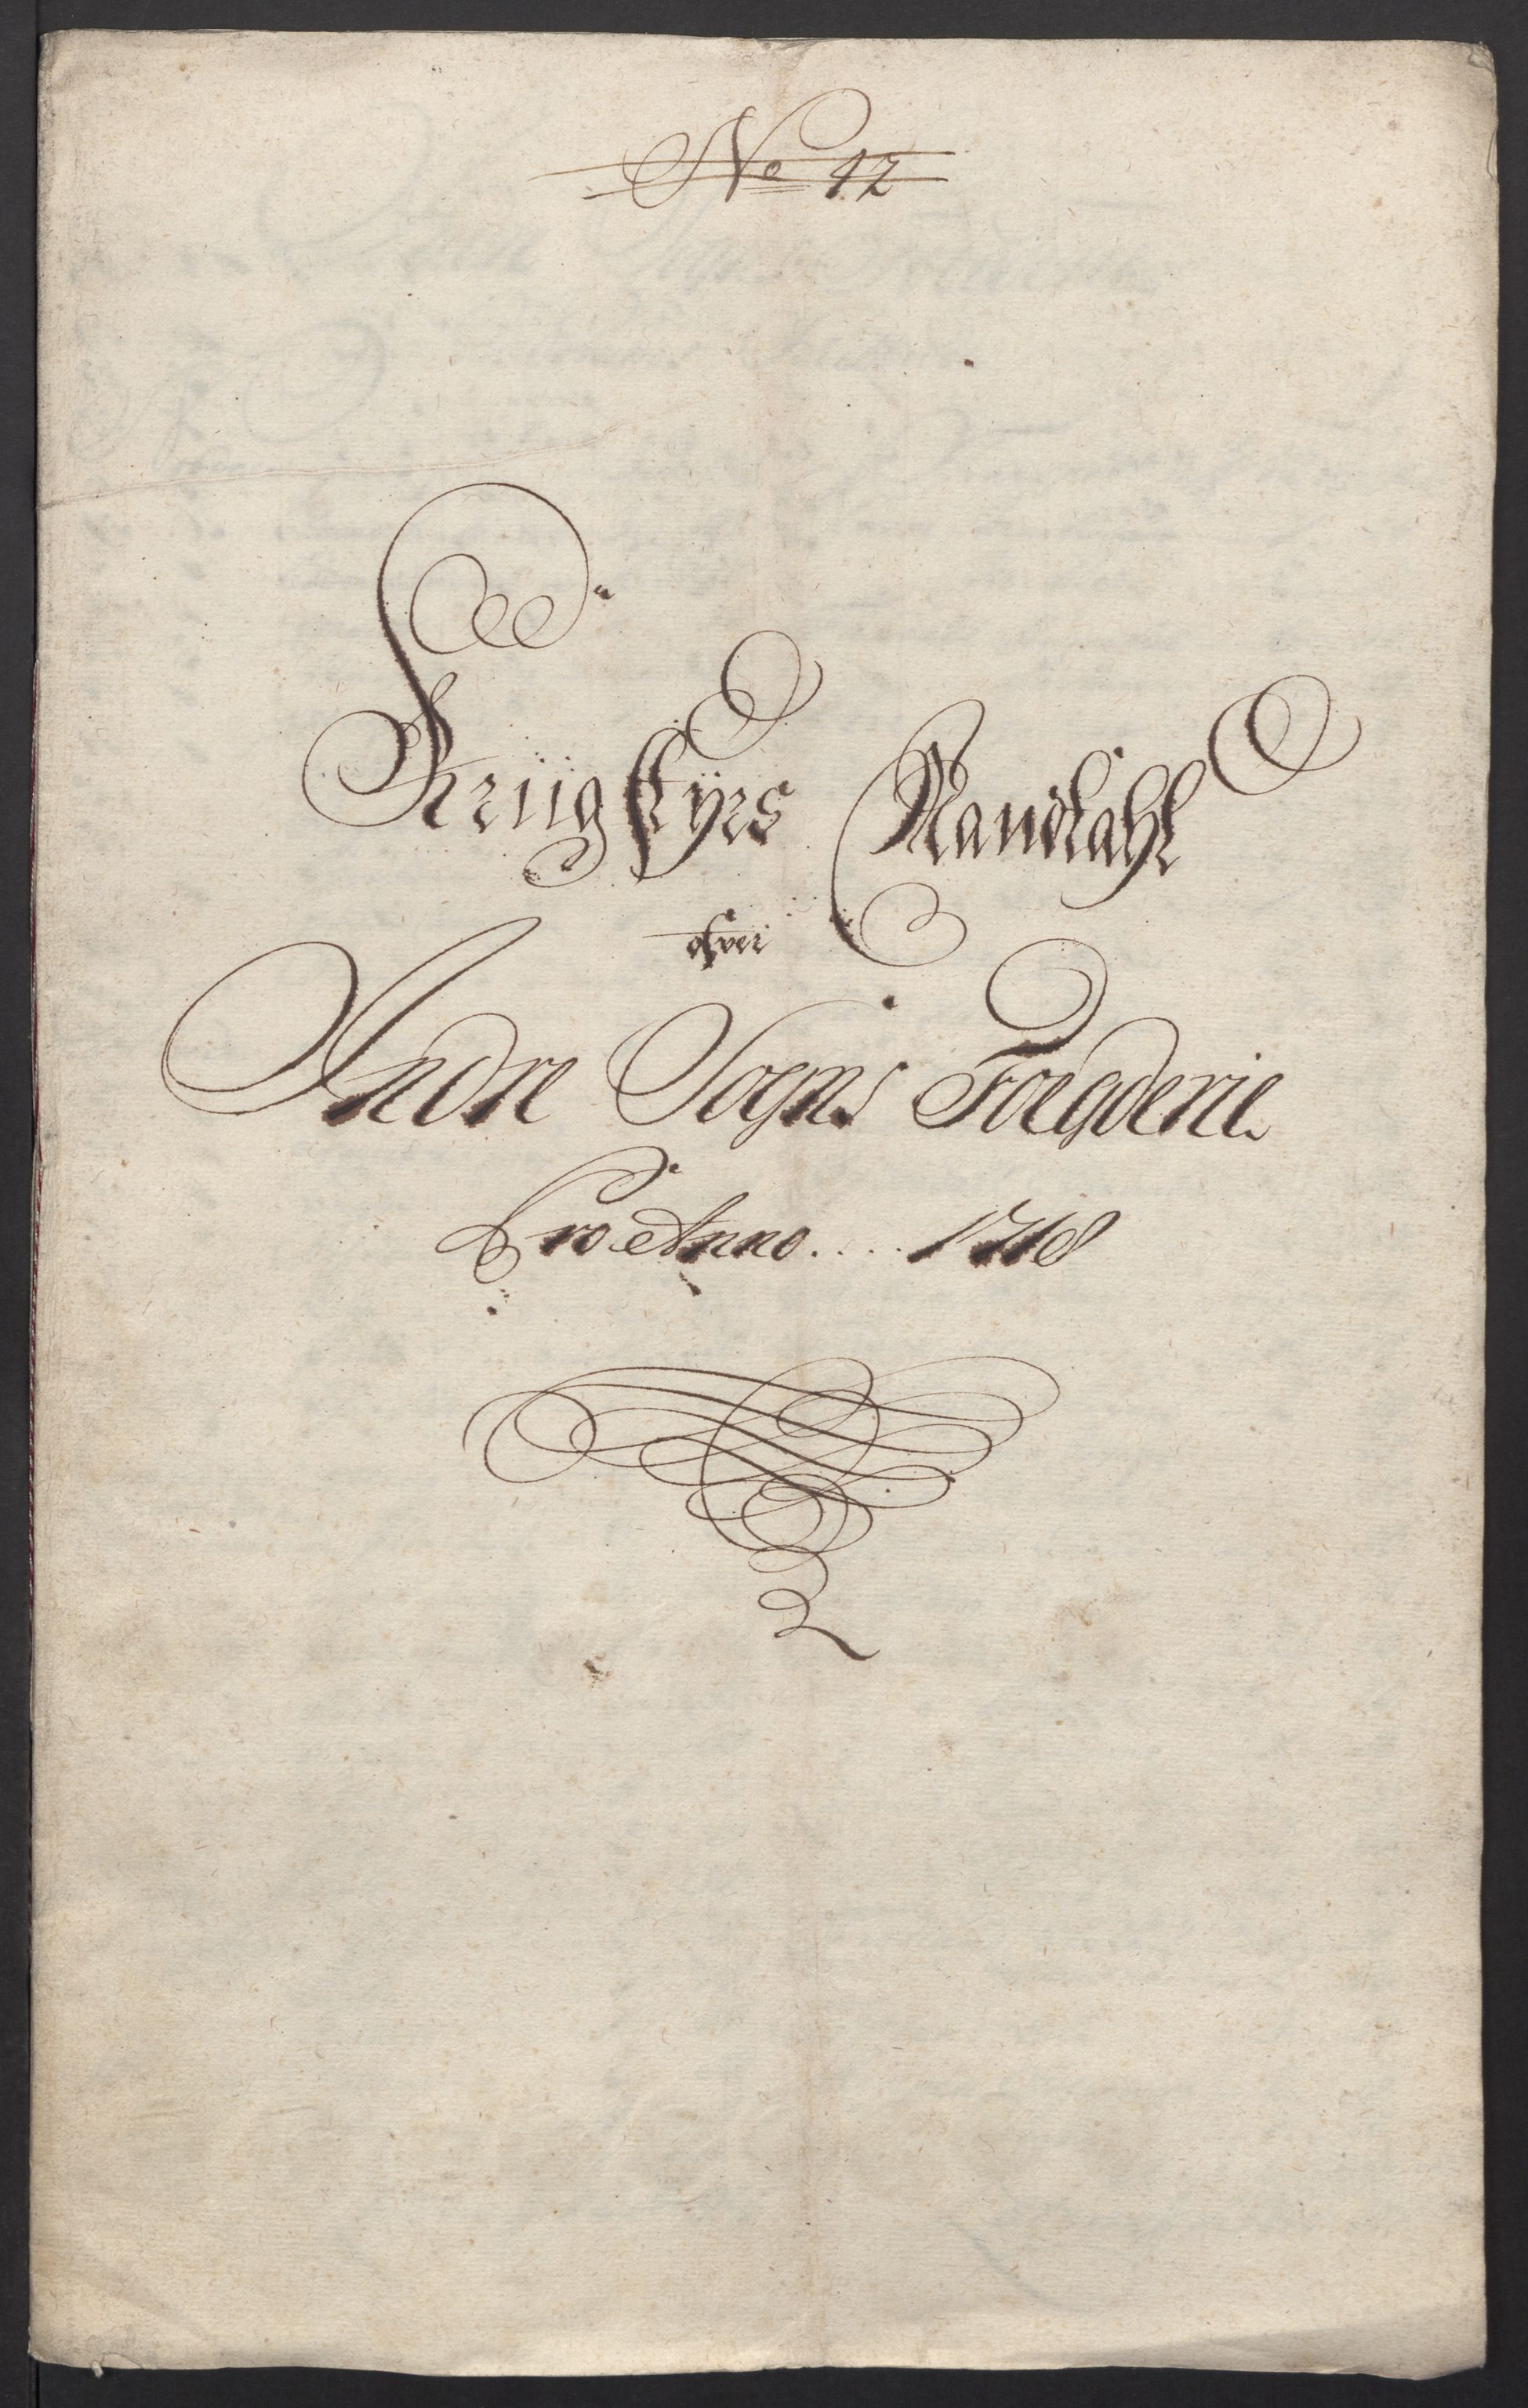 No 12
Kriigstyrs Mandtahl
ofver
Indre Sogns Foegderie
Pro Anno.... 1718